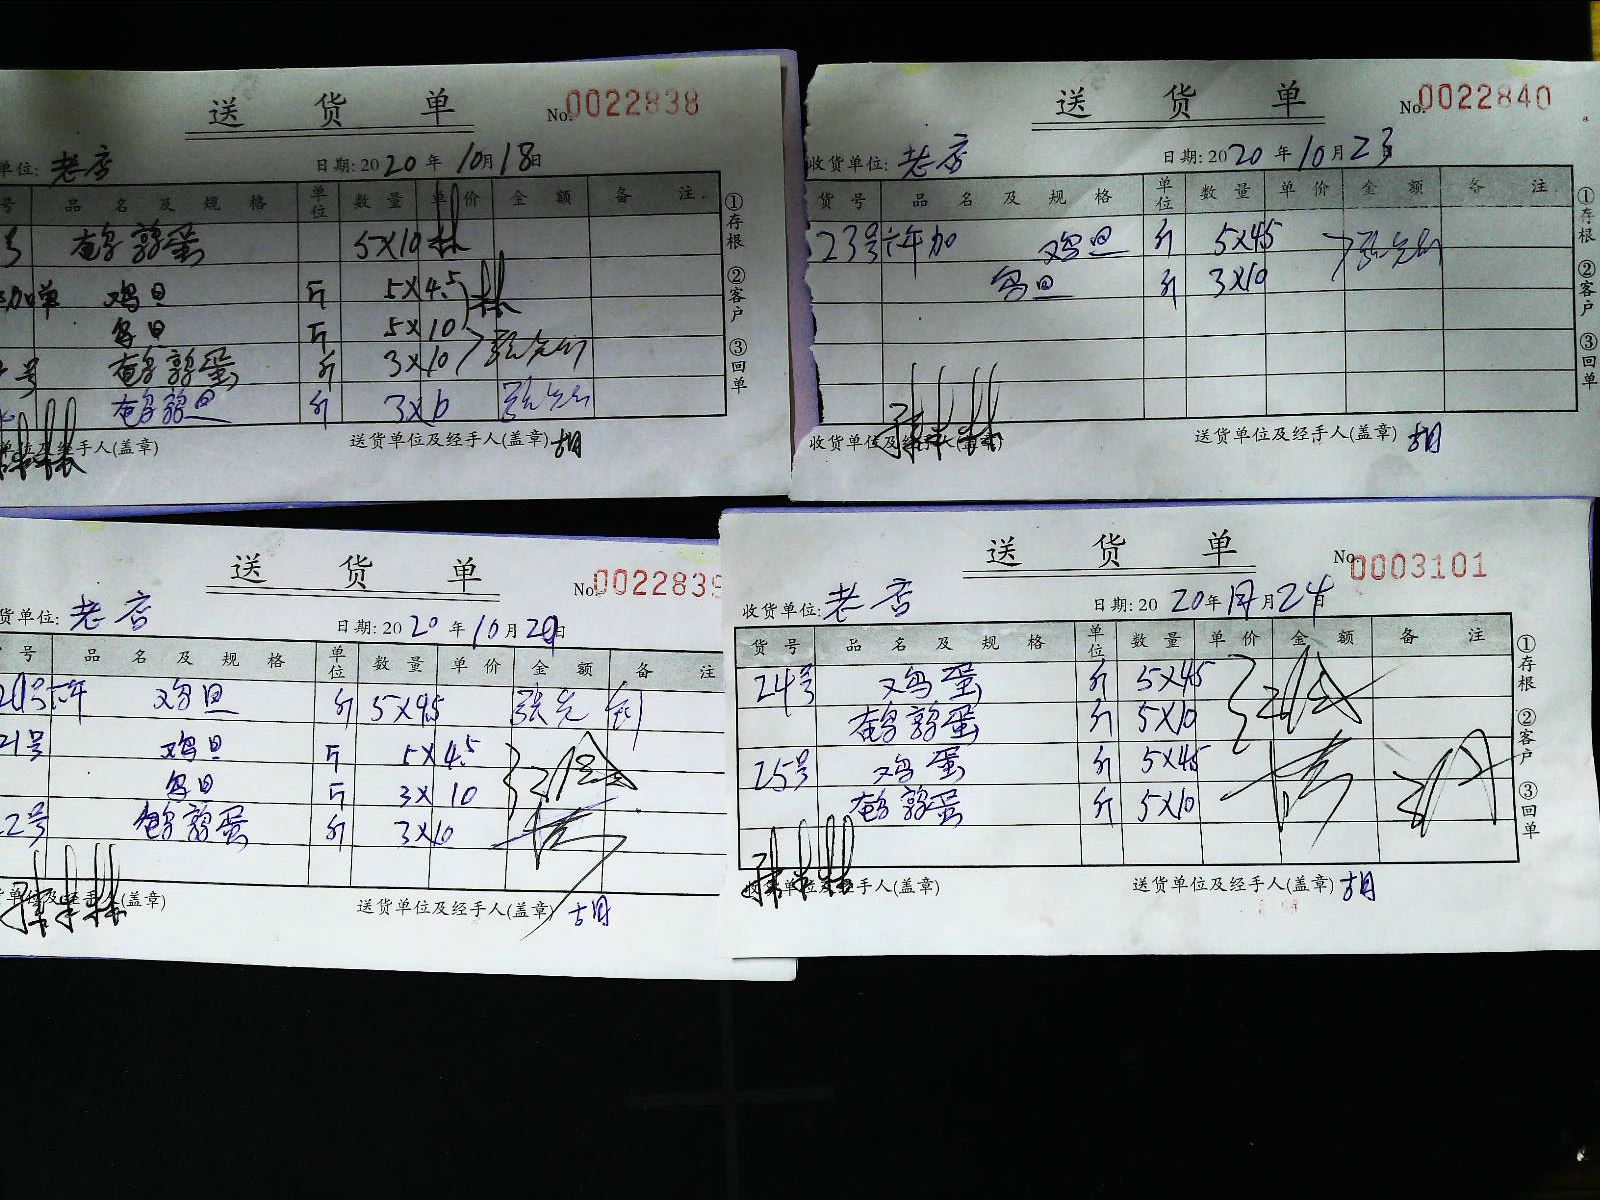 送 货 单 No.0022838
单位: 老店 日期: 2020 年 10月18日
号 品 名 及 规 格 单位 数 量 单 价 金 额 备 注
号 鹌鹑蛋 5×10 林
加单 鸡旦 斤 5×4.5 林
鸟旦 斤 5×10
号 鹌鹑蛋 斤 3×10
鹌鹑旦 斤 3×6
单位及经手人(盖章) 送货单位及经手人(盖章) 胡
①存根 ②客户 ③回单
送 货 单 No.0022840
收货单位: 老店 日期: 2020 年 10月23
货 号 品 名 及 规 格 单位 数 量 单 价 金 额 备 注
23号 六年加 鸡旦 斤 5×45
鸟旦 斤 3×10
收货单位及经手人(盖章) 送货单位及经手人(盖章) 胡
①存根 ②客户 ③回单
送 货 单 No.0022839
货单位: 老店 日期: 2020 年 10月20日
号 品 名 及 规 格 单位 数 量 单 价 金 额 备 注
20号 六年 鸡旦 斤 5×45
21号 鸡旦 斤 5×4.5
鸟旦 斤 3×10
22号 鹌鹑蛋 斤 3×10
货单位及经手人(盖章) 送货单位及经手人(盖章) 胡
送 货 单 No.0003101
收货单位: 老店 日期: 2020年 月24日
货 号 品 名 及 规 格 单位 数 量 单 价 金 额 备 注
24号 鸡蛋 斤 5×45
鹌鹑蛋 斤 5×10
25号 鸡蛋 斤 5×45
鹌鹑蛋 斤 5×10
收货单位及经手人(盖章) 送货单位及经手人(盖章) 胡
①存根 ②客户 ③回单